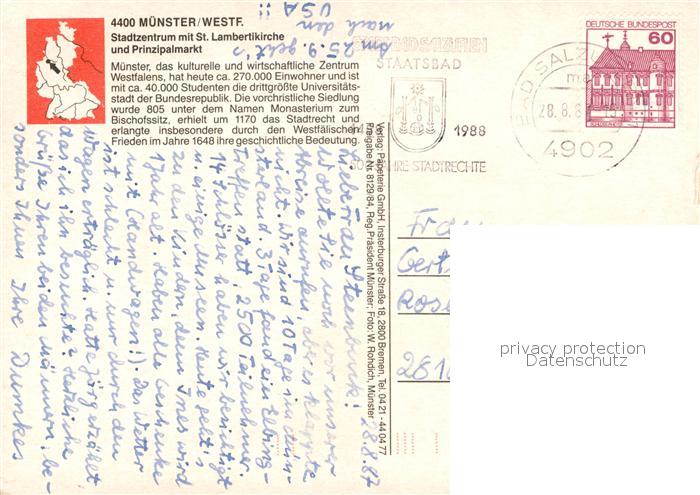 4400 MÜNSTER/WESTF.
Stadtzentrum mit St. Lambertikirche
und Prinzipalmarkt
Münster, das kulturelle und wirtschaftliche Zentrum
Westfalens, hat heute ca. 270.000 Einwohner und ist
mit ca. 40.000 Studenten die drittgrößte Universitäts-
stadt der Bundesrepublik. Die vorchristliche Siedlung
wurde 805 unter dem Namen Monasterium zum
Bischofssitz, erhielt um 1170 das Stadtrecht und
erlangte insbesondere durch den Westfälischen
Frieden im Jahre 1648 ihre geschichtliche Bedeutung.
Am 25.9. geht's
nach den
USA!!
STAATSBAD
1988
JAHRE STADTRECHTE
BAD SALZU
28.8.8
4902
DEUTSCHE BUNDESPOST
60
Verlag: Papeterie GmbH, Insterburger Straße 18, 2800 Bremen, Tel. 04 21 - 44 04 77
Freigabe Nr. 8129/84, Reg.Präsident Münster; Foto: W. Rohdich, Münster
28.8.87
Liebe Frau Steenbuck!
Wollte Sie noch vor unserer
Abreise anrufen, aber es klappte
nicht. Wir sind 10 Tage im Mün-
sterland. 3 Tage fand ein
treffen statt, 2500 Teilnehmer.
14 Schlösser haben wir besichtigt
u. einige Museen. Heute geht's
zu den Kindern, denn Ines wird
1 Jahr alt. Haben alle Geschenke
mit (Handwagen!). Das Wetter
ist schlecht u. nur durch den
Wagen erträglich. Hatte Jürg erzählt,
das ich ihn besuchte? Herzliche
Grüße Ihren beiden Männern, be-
sonders Ihnen Ihre Dumkes
Frau
Gert
Rose
281
privacy protection
Datenschutz